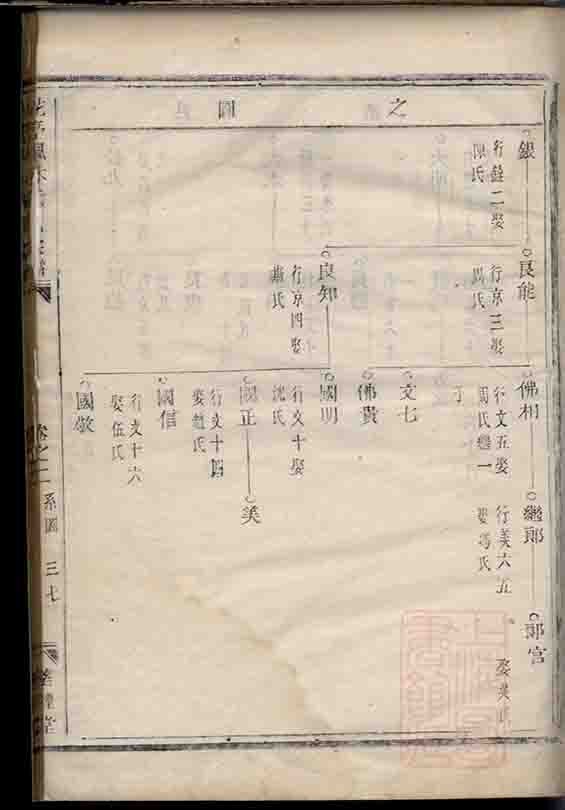 之圖
銀
行錢二娶
陳氏
良能
行京三娶
馬氏
良知
行京四娶
佛相
行文五娶
周氏繼一
子
文七
佛貴
國明
行文十娶
沈氏
國正
行文十四
娶趙氏
國信
行文十六
娶伍氏
國敬
繼郎
行美六五
娶馮氏
美
郭宮
卷之二
系圖
三七